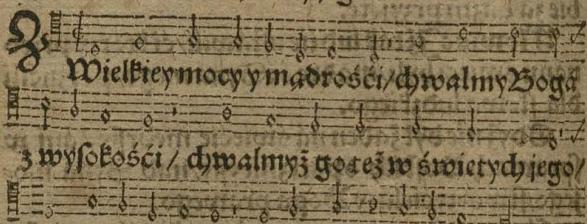 Z Wielkiey mocy y mądrośći/chwalmy Bogá
z wysokośći / chwalmyż go też w świetych jego/